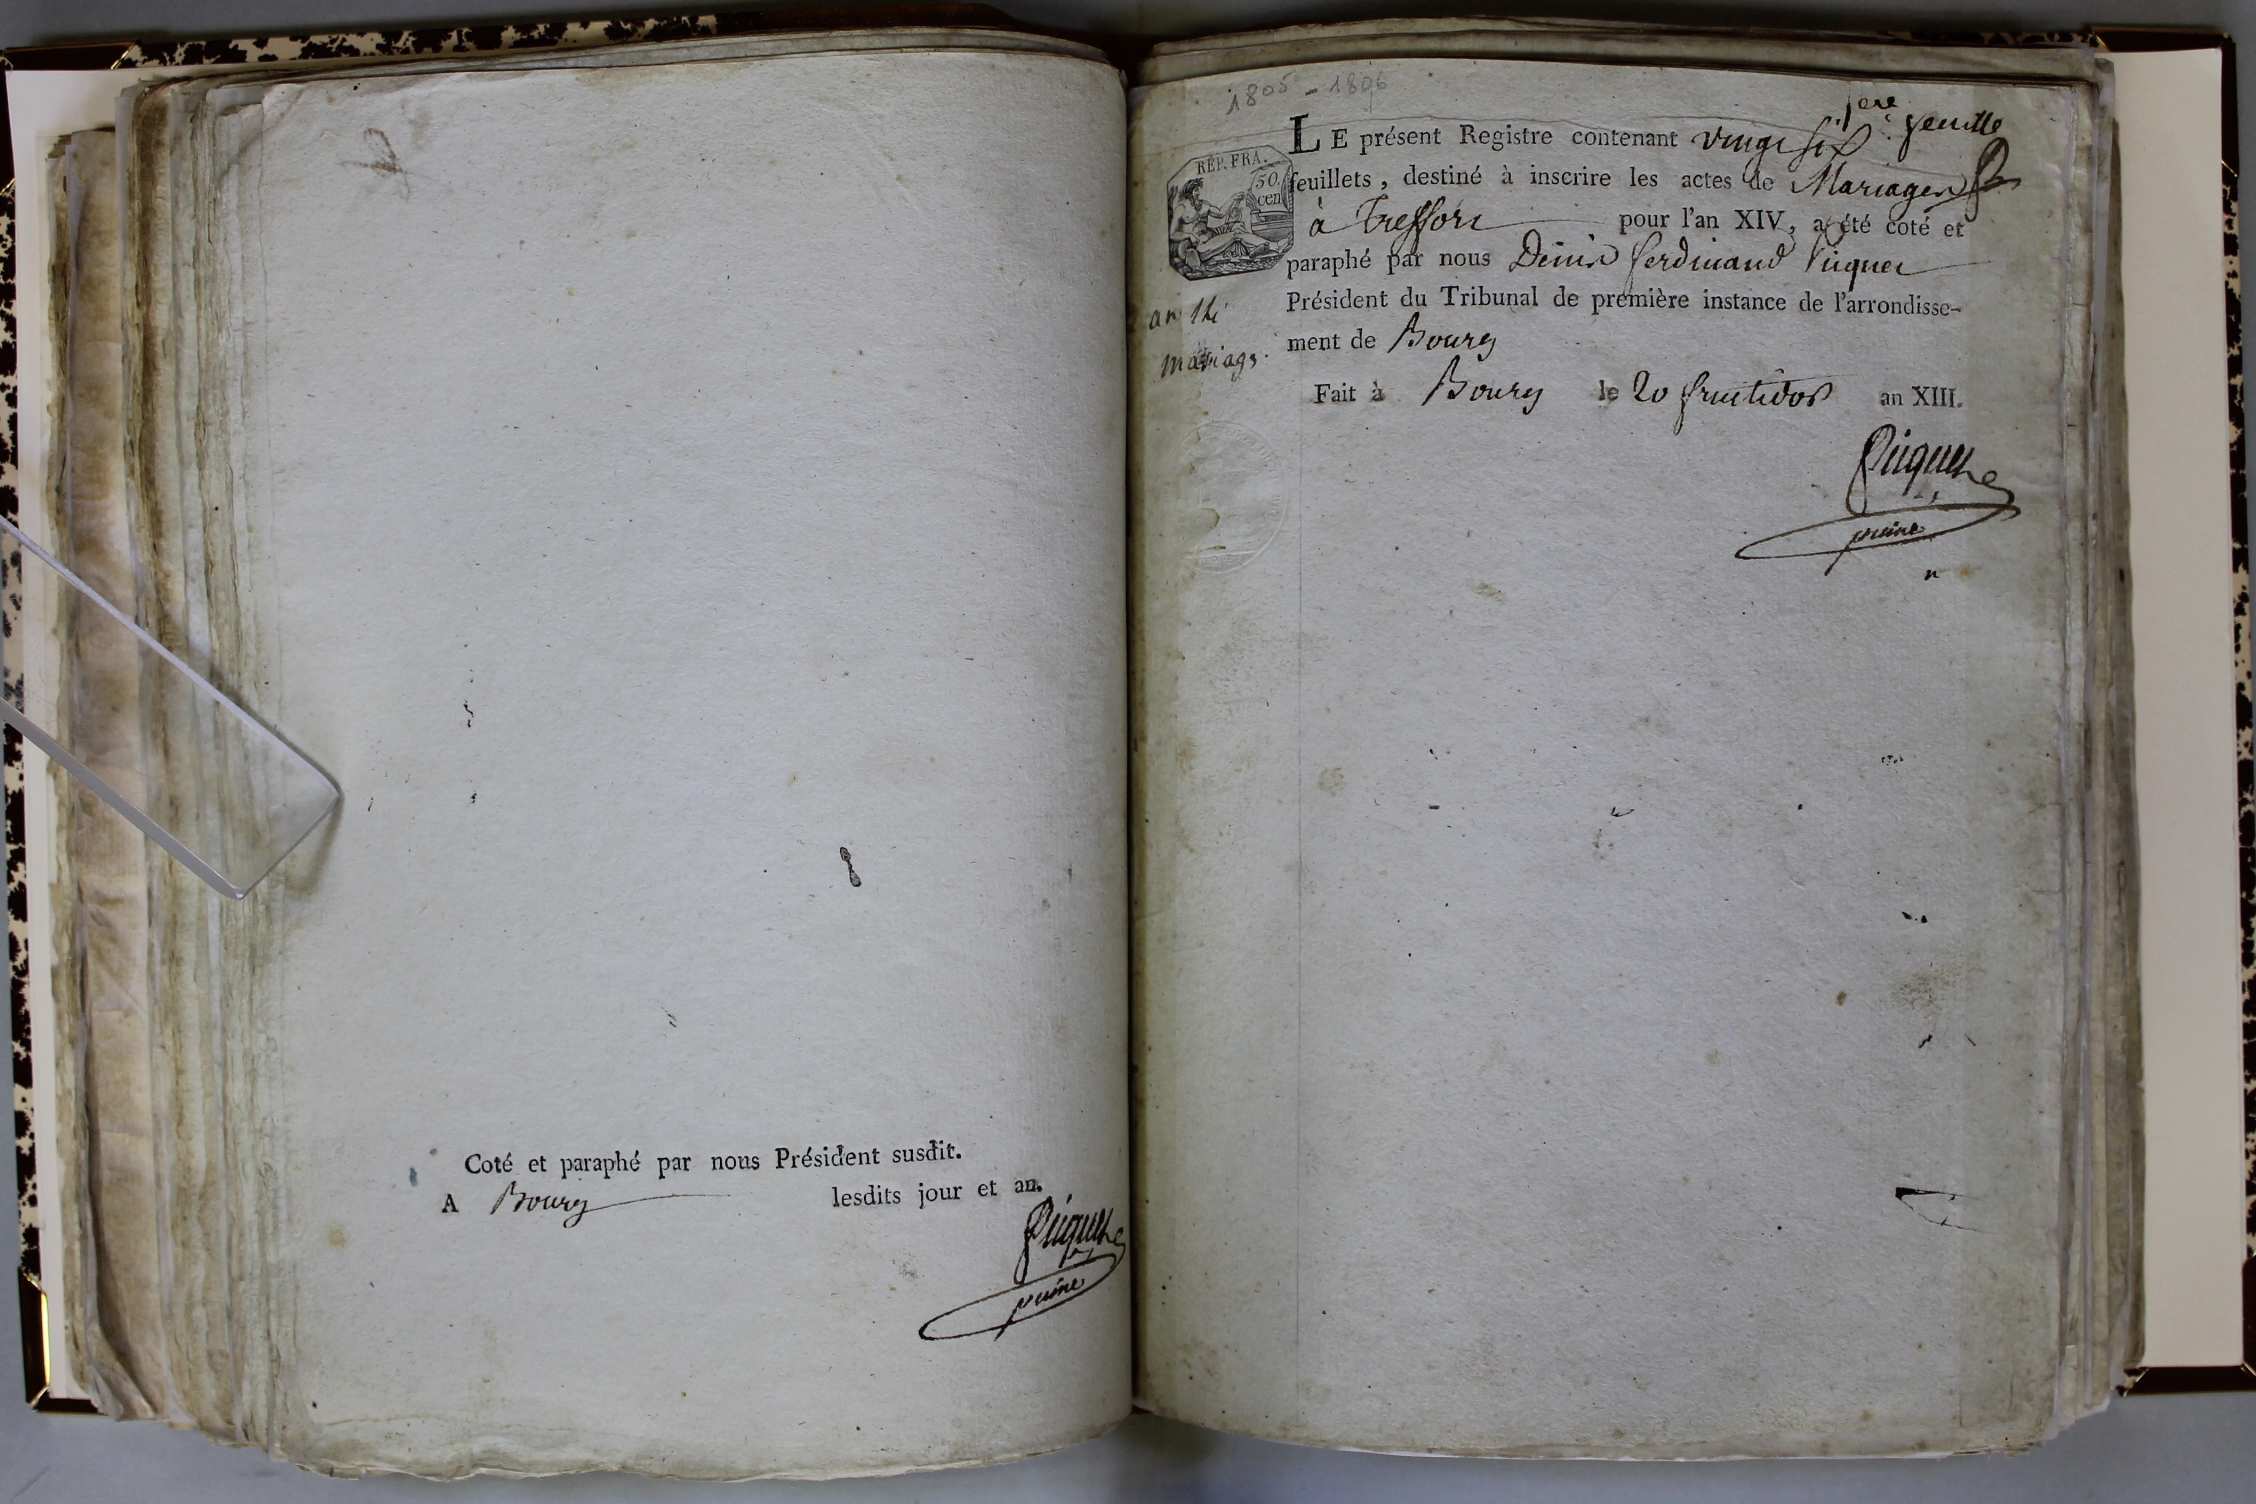 Coté et paraphé par nous Président susdit.
A Bourg lesdits jour et an.
Piquet
puiné
1805 - 1806
1ere feuille
LE présent Registre contenant vingt six
REP. FRA.
50
cen
feuillets, destiné à inscrire les actes de Mariages
à Treffort pour l'an XIV, a été coté et
paraphé par nous Denis ferdinand Piquet
Président du Tribunal de première instance de l'arrondisse-
an 14
ment de Bourg
mariages
Fait à Bourg le 20 fructidor an XIII.
Piquet
puiné